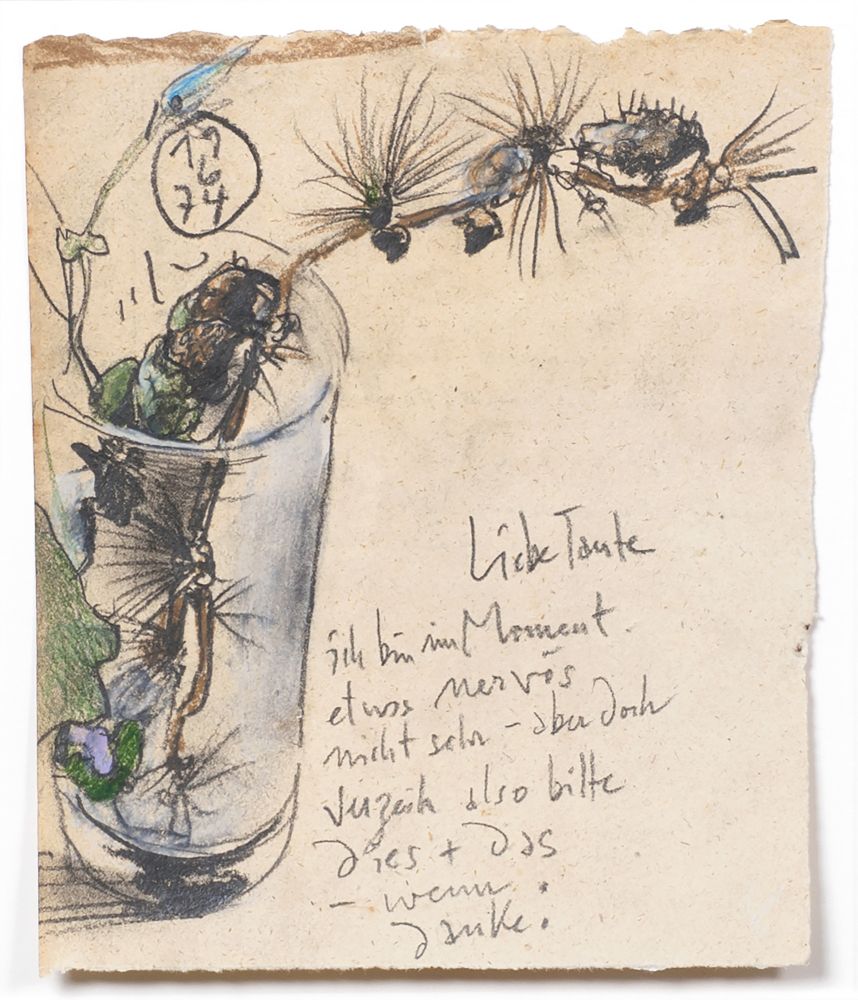 19
6
74
Liebe Tante
ich bin im Moment.
etwas nervös
nicht sehr – aber doch
verzeih also bitte
dies + das
– wenn :
danke :